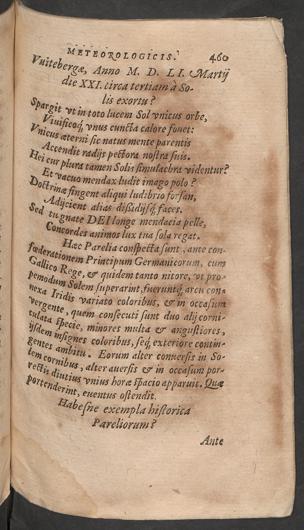 METEOROLOGICIS. 460
Vuitebergæ, Anno M. D. LI. Martij
die XXI. circa tertiam à So-
lis exortu?
Spargit vt in toto lucem Sol vnicus orbe,
Viuificoq́; vnus cuncta calore fouet:
Vnicus æterni sic natus mente parentis
Accendit radijs pectora nostra suis.
Hei cur plura tamen Solis simulacbra videntur?
Et vacuo mendax ludit imago polo?
Doctrinæ fingent aliqui ludibrio forsan,
Adijcient alias dißidijsq́; faces.
Sed tu gnate DEI longe mendacia pelle,
Concordes animos lux tua sola regat.
Hæc Parelia conspecta sunt, ante con-
fœderationem Principum Germanicorum, cum
Gallico Rege, & quidem tanto nitore, vt pro-
pemodum Solem superarint, fueruntq́; arcu con-
nexa Iridis variato coloribus, & in occasum
vergente, quem consecuti sunt duo alij corni-
culata specie, minores multa & angustiores,
ijsdem insignes coloribus, seq́; exteriore contin-
gentes ambitu. Eorum alter conuersis in So-
lem cornibus, alter auersis & in occasum por-
rectis diutius vnius horæ spacio apparuit. Quæ
portenderint, euentus ostendit.
Habesne exempla historica
Pareliorum?
Ante